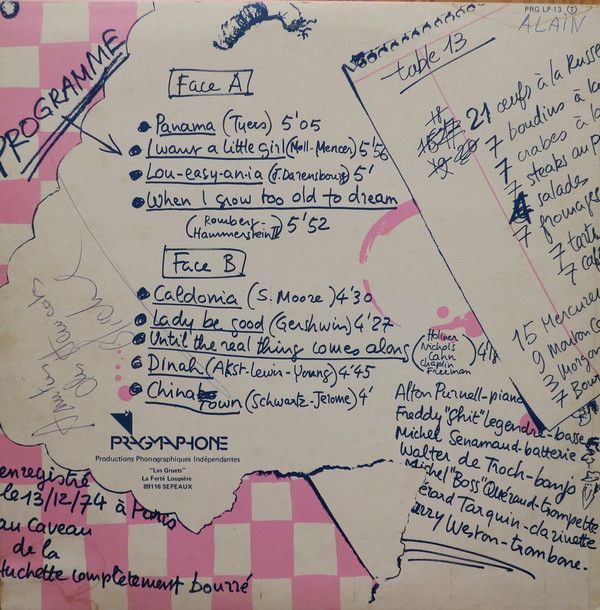 PRG LP-13 T
ALAIN
PROGRAMME
Face A
Panama (Tyers) 5'05
I want a little girl (Moll-Mencer) 5'56
Lou-easy-ania (J. Darensbourg) 5'
When I grow too old to dream
(Romberg-
Hammerstein II) 5'52
Face B
Caldonia (S. Moore) 4'30
Lady be good (Gershwin) 4'27
Until the real thing comes along (Holiner Nichols Cahn Chaplin Freeman) 4'18
Dinah (Akst-Lewin-Young) 4'45
China Town (Schwartz-Jerome) 4'
PRAGMAPHONE
Productions Phonographiques Indépendantes
"Les Gruets"
La Ferté Loupière
89116 SEPEAUX
enregistré
le 13/12/74 à Paris
au Caveau
de la
Huchette complètement bourré
table 13
21 œufs à la Russe
7 boudins à la
7 crabes à la
7 steaks au p
salades
7 fromages
7 tarte
7 café
15 Mercurey
9 Macon
3 Morgon
7 Bour
Alton Purnell-piano
Freddy "Shit" Legendre-basse
Michel Senamaud-batterie
Walter de Troch-banjo
Michel "Boss" Quéraud-trompette
Gérard Tarquin-clarinette
Weston-trombone-